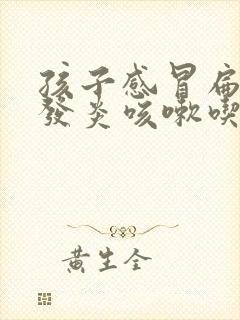 孩子感冒扁
發炎咳嗽喫
黃生全